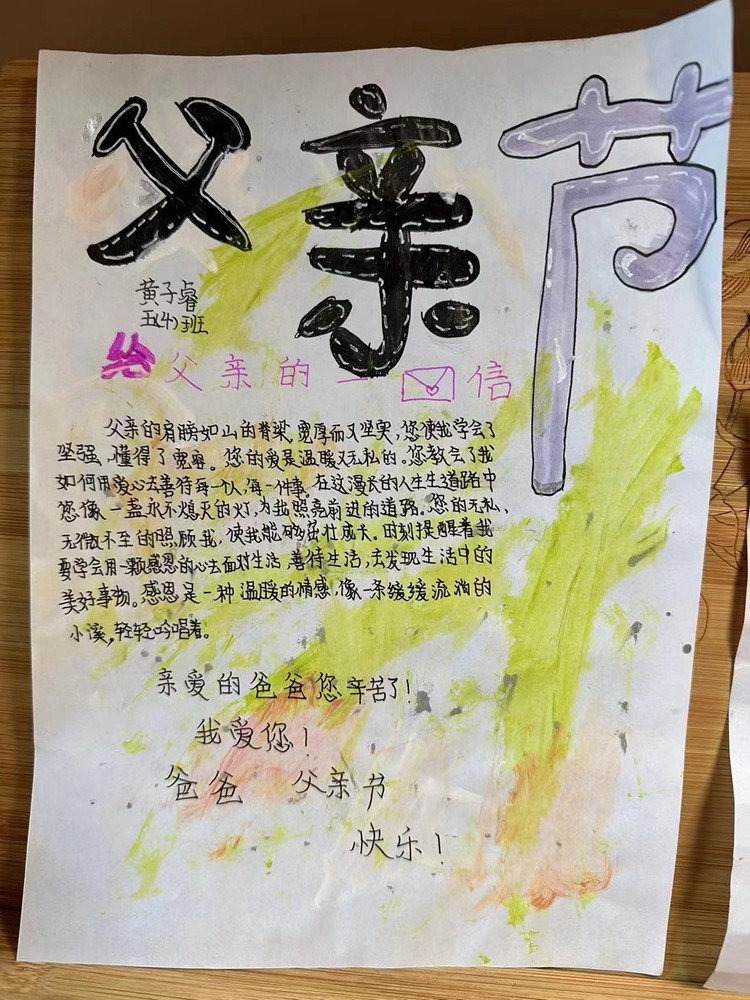 父亲节
黄子睿
五(4)班
给父亲的一 信
父亲的肩膀如山的脊梁,宽厚而又坚实,您使我学会了
坚强,懂得了宽容。您的爱是温暖又无私的。您教会了我
如何用爱心去善待每一个人,每一件事。在这漫长的人生生道路中
您像一盏永不熄灭的灯,为我照亮前进的道路。您的无私,
无微不至的照顾我,使我能够茁壮成长。时刻提醒着我
要学会用一颗感恩的心去面对生活,善待生活,去发现生活中的
美好事物。感恩是一种温暖的情感,像一条缓缓流淌的
小溪,轻轻吟唱着。
亲爱的爸爸您辛苦了!
我爱您!
爸爸 父亲节
快乐!